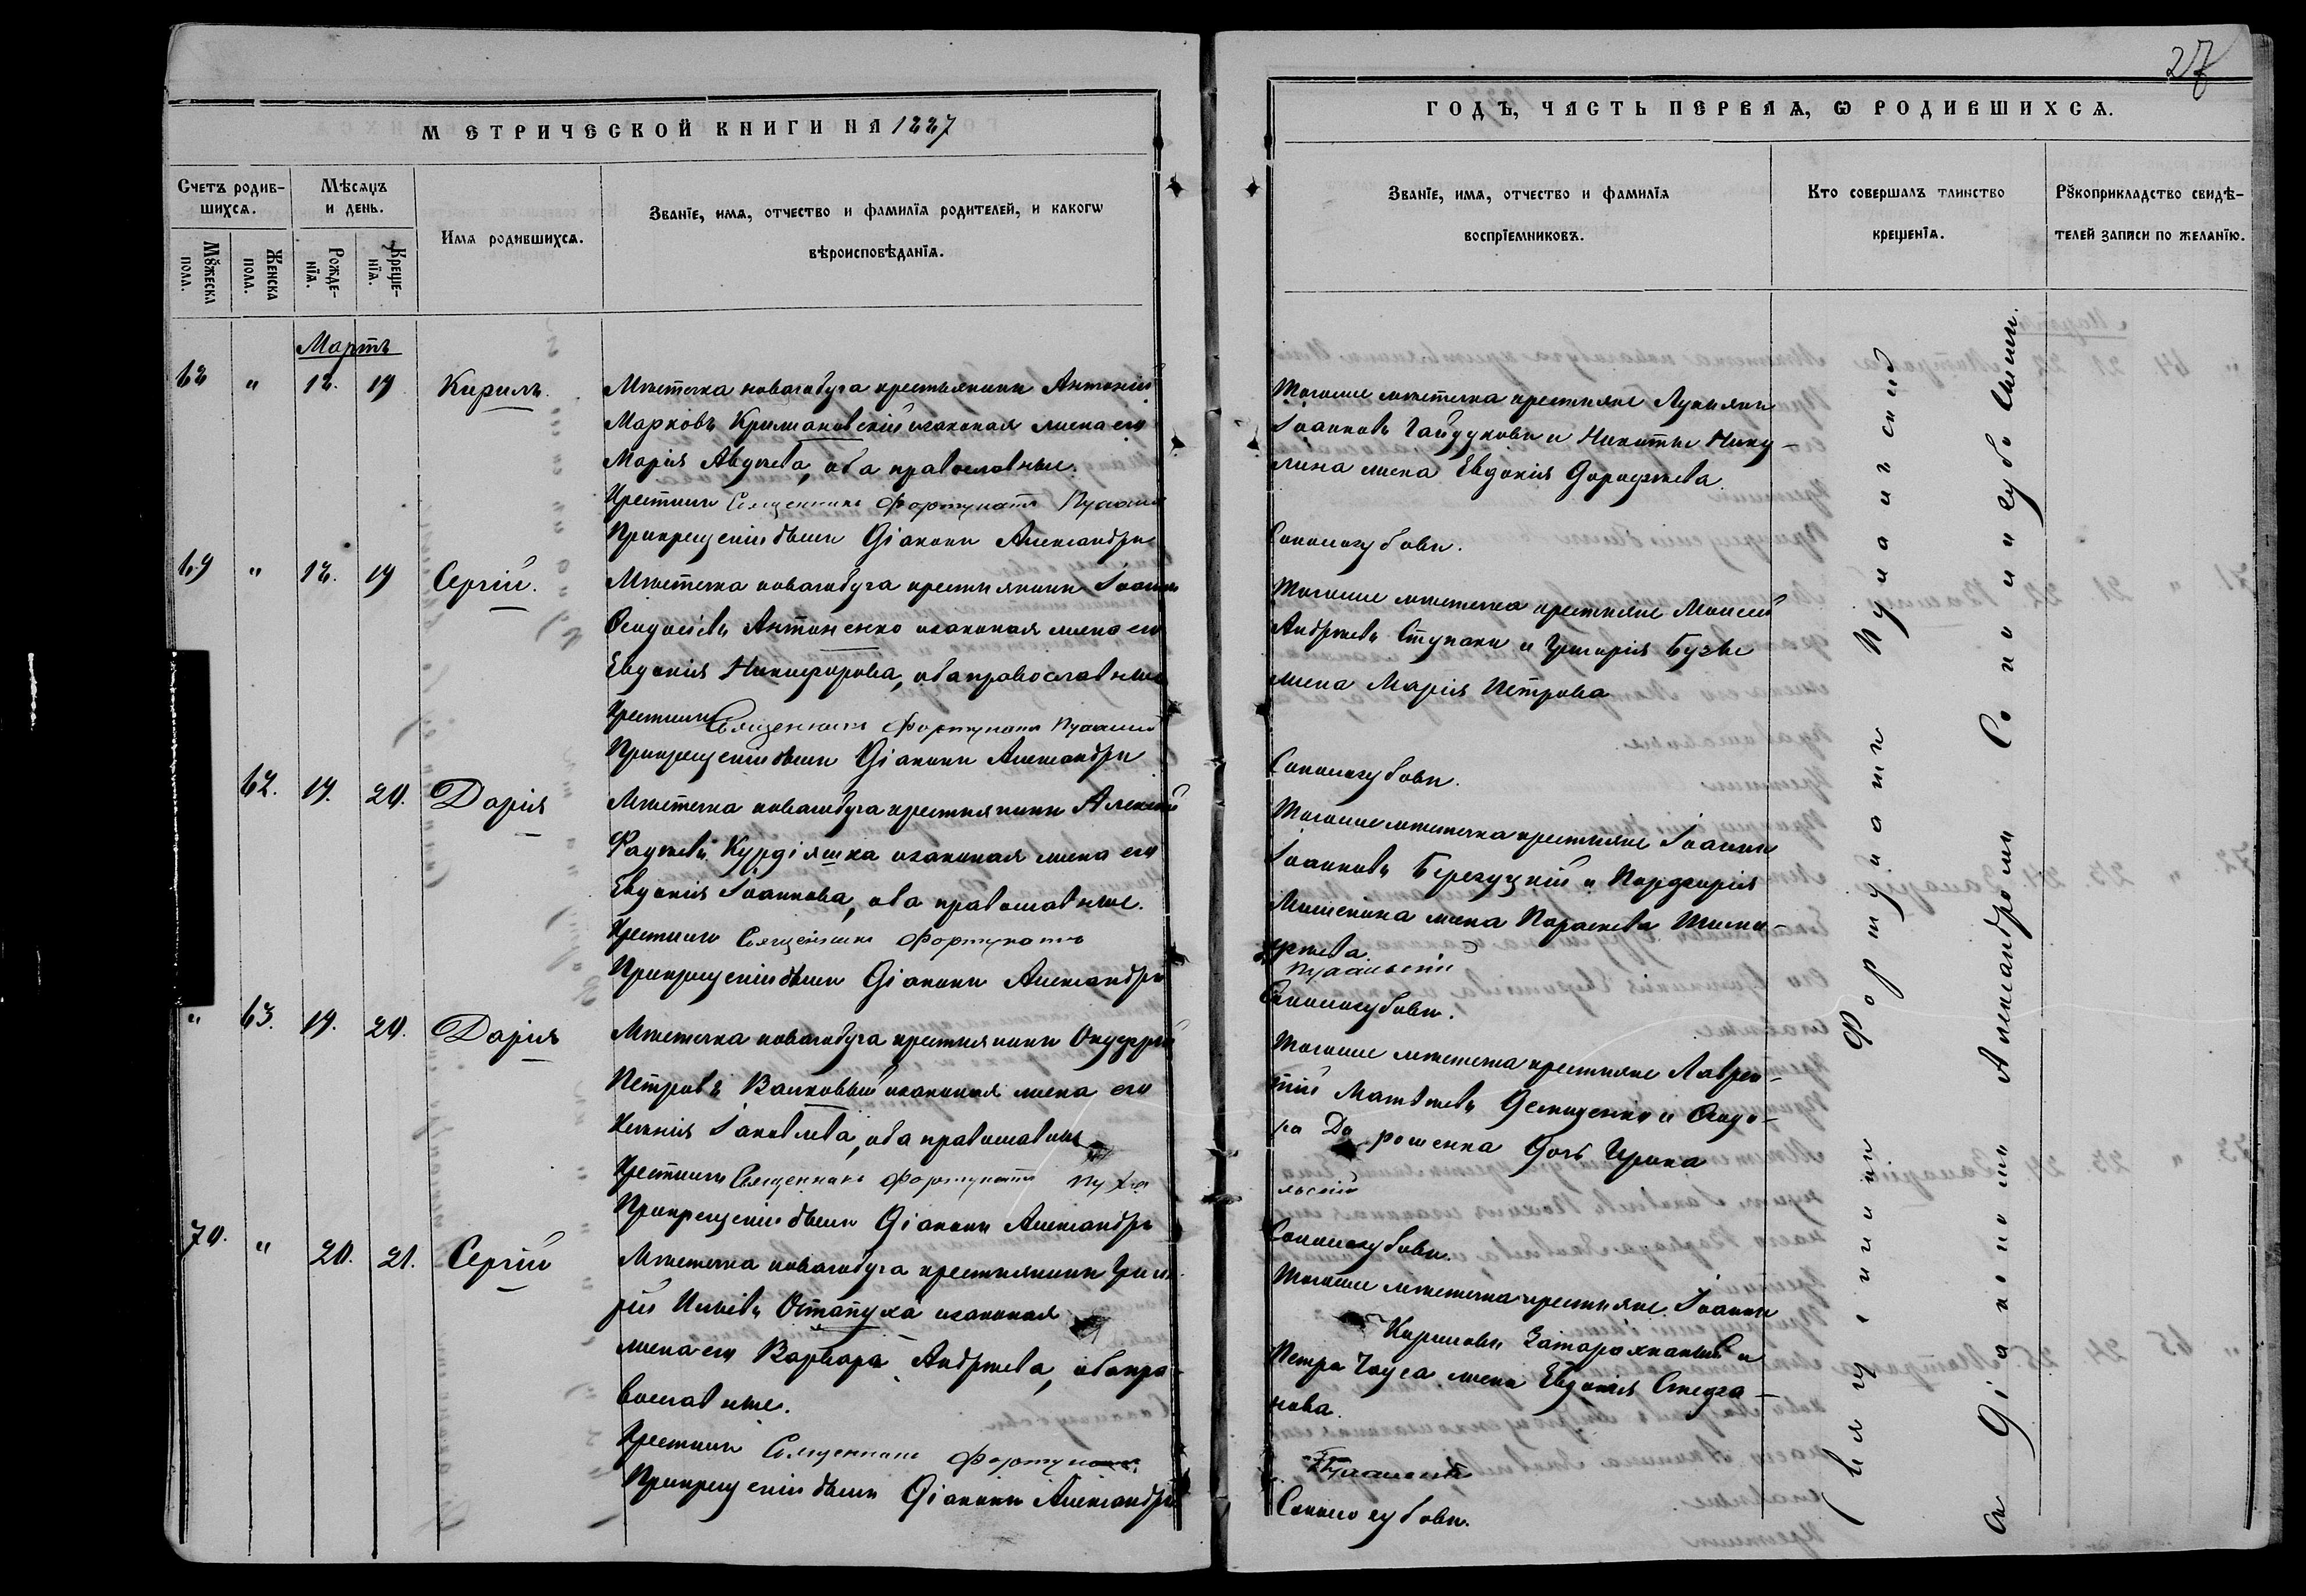 27
МЕТРИЧЕСКОЙ КНИГИ НА 1887
ГОДЪ, ЧАСТЬ ПЕРВАѦ, Ѡ РОДИВШИХСѦ.
Счетъ родив-
шихсѧ.
Мꙋжеска
пола.
Женска
пола.
Мѣсѧцъ
и день.
Рожде-
нїѧ.
Креще-
нїѧ.
Имѧ родившихсѧ.
Званїе, имѧ, отчество и фамилїѧ родителей, и какогѡ
вѣроисповѣданїѧ.
Званїе, имѧ, отчество и фамилїѧ
воспрїемниковъ.
Кто совершалъ таинство
крещенїѧ.
Рꙋкоприкладство свидѣ-
телей записи по желанїю.
Мартъ
68 " 18. 19 Кирилъ.
Мѣстечка новагобуга крестьянинъ Антоній
Марковъ Крилшановскій изаконая жена его
Марія Авдѣева, оба православные.
Крестилъ Священникъ Фортунатъ
При крещеніи былъ Діаконъ Александръ
Тогоже мѣстечка крестьяне Лукьянъ
Іоанновъ Гайдуковъ и Никиты Нику-
лина жена Евдокія Дорофѣева.
Сокологубовъ.
69 " 18. 19 Сергій.
Мѣстечка новагобуга крестьянинъ Іоаннъ
Ѳеодосіевъ Антоненко изаконая жена его
Евдокія Никифорова, оба православные
Крестилъ Священникъ Фортунатъ
При крещеніи былъ Діаконъ Александръ
Тогоже мѣстечка крестьяне Моисей
Андреевъ Ступакъ и Григорія
жена Марія Петрова
Сокологубовъ.
62. 19. 20. Дарія
Мѣстечка новагобуга крестьянинъ Алексій
Фадѣевъ Курдіяшка изаконая жена его
Евдокія Іоаннова, оба православные.
Крестилъ Священникъ Фортунатъ
При крещеніи былъ Діаконъ Александръ
Тогоже мѣстечка крестьяне Іоаннъ
Іоанновъ Берегуцкій и Порфирія
жена Параскева
Сокологубовъ.
" 63. 19. 20. Дарія
Мѣстечка новагобуга крестьянинъ Онуфрій
Петровъ Валковый изаконая жена его
Ксенія Іаковлева, оба православные
Крестилъ Священникъ Фортунатъ
При крещеніи былъ Діаконъ Александръ
Тогоже мѣстечка крестьяне Лаврен-
тій Матвѣевъ Демиденко и Ѳеодо-
ра Дорошенка дочь Ирина
Сокологубовъ.
70. " 20. 21. Сергій
Мѣстечка новагобуга крестьянинъ Григо-
рій Ильинъ Остапуха изаконая
жена его Варвара Андреева, оба пра-
вославные.
Крестилъ Священникъ Фортунатъ
При крещеніи былъ Діаконъ Александръ
Тогоже мѣстечка крестьяне Іоаннъ
Кириловъ и
Петра Чауса жена Евдокія Стефа-
нова.
Сокологубовъ.
Священникъ Фортунатъ
съ Діакономъ Александромъ Сокологубовымъ.